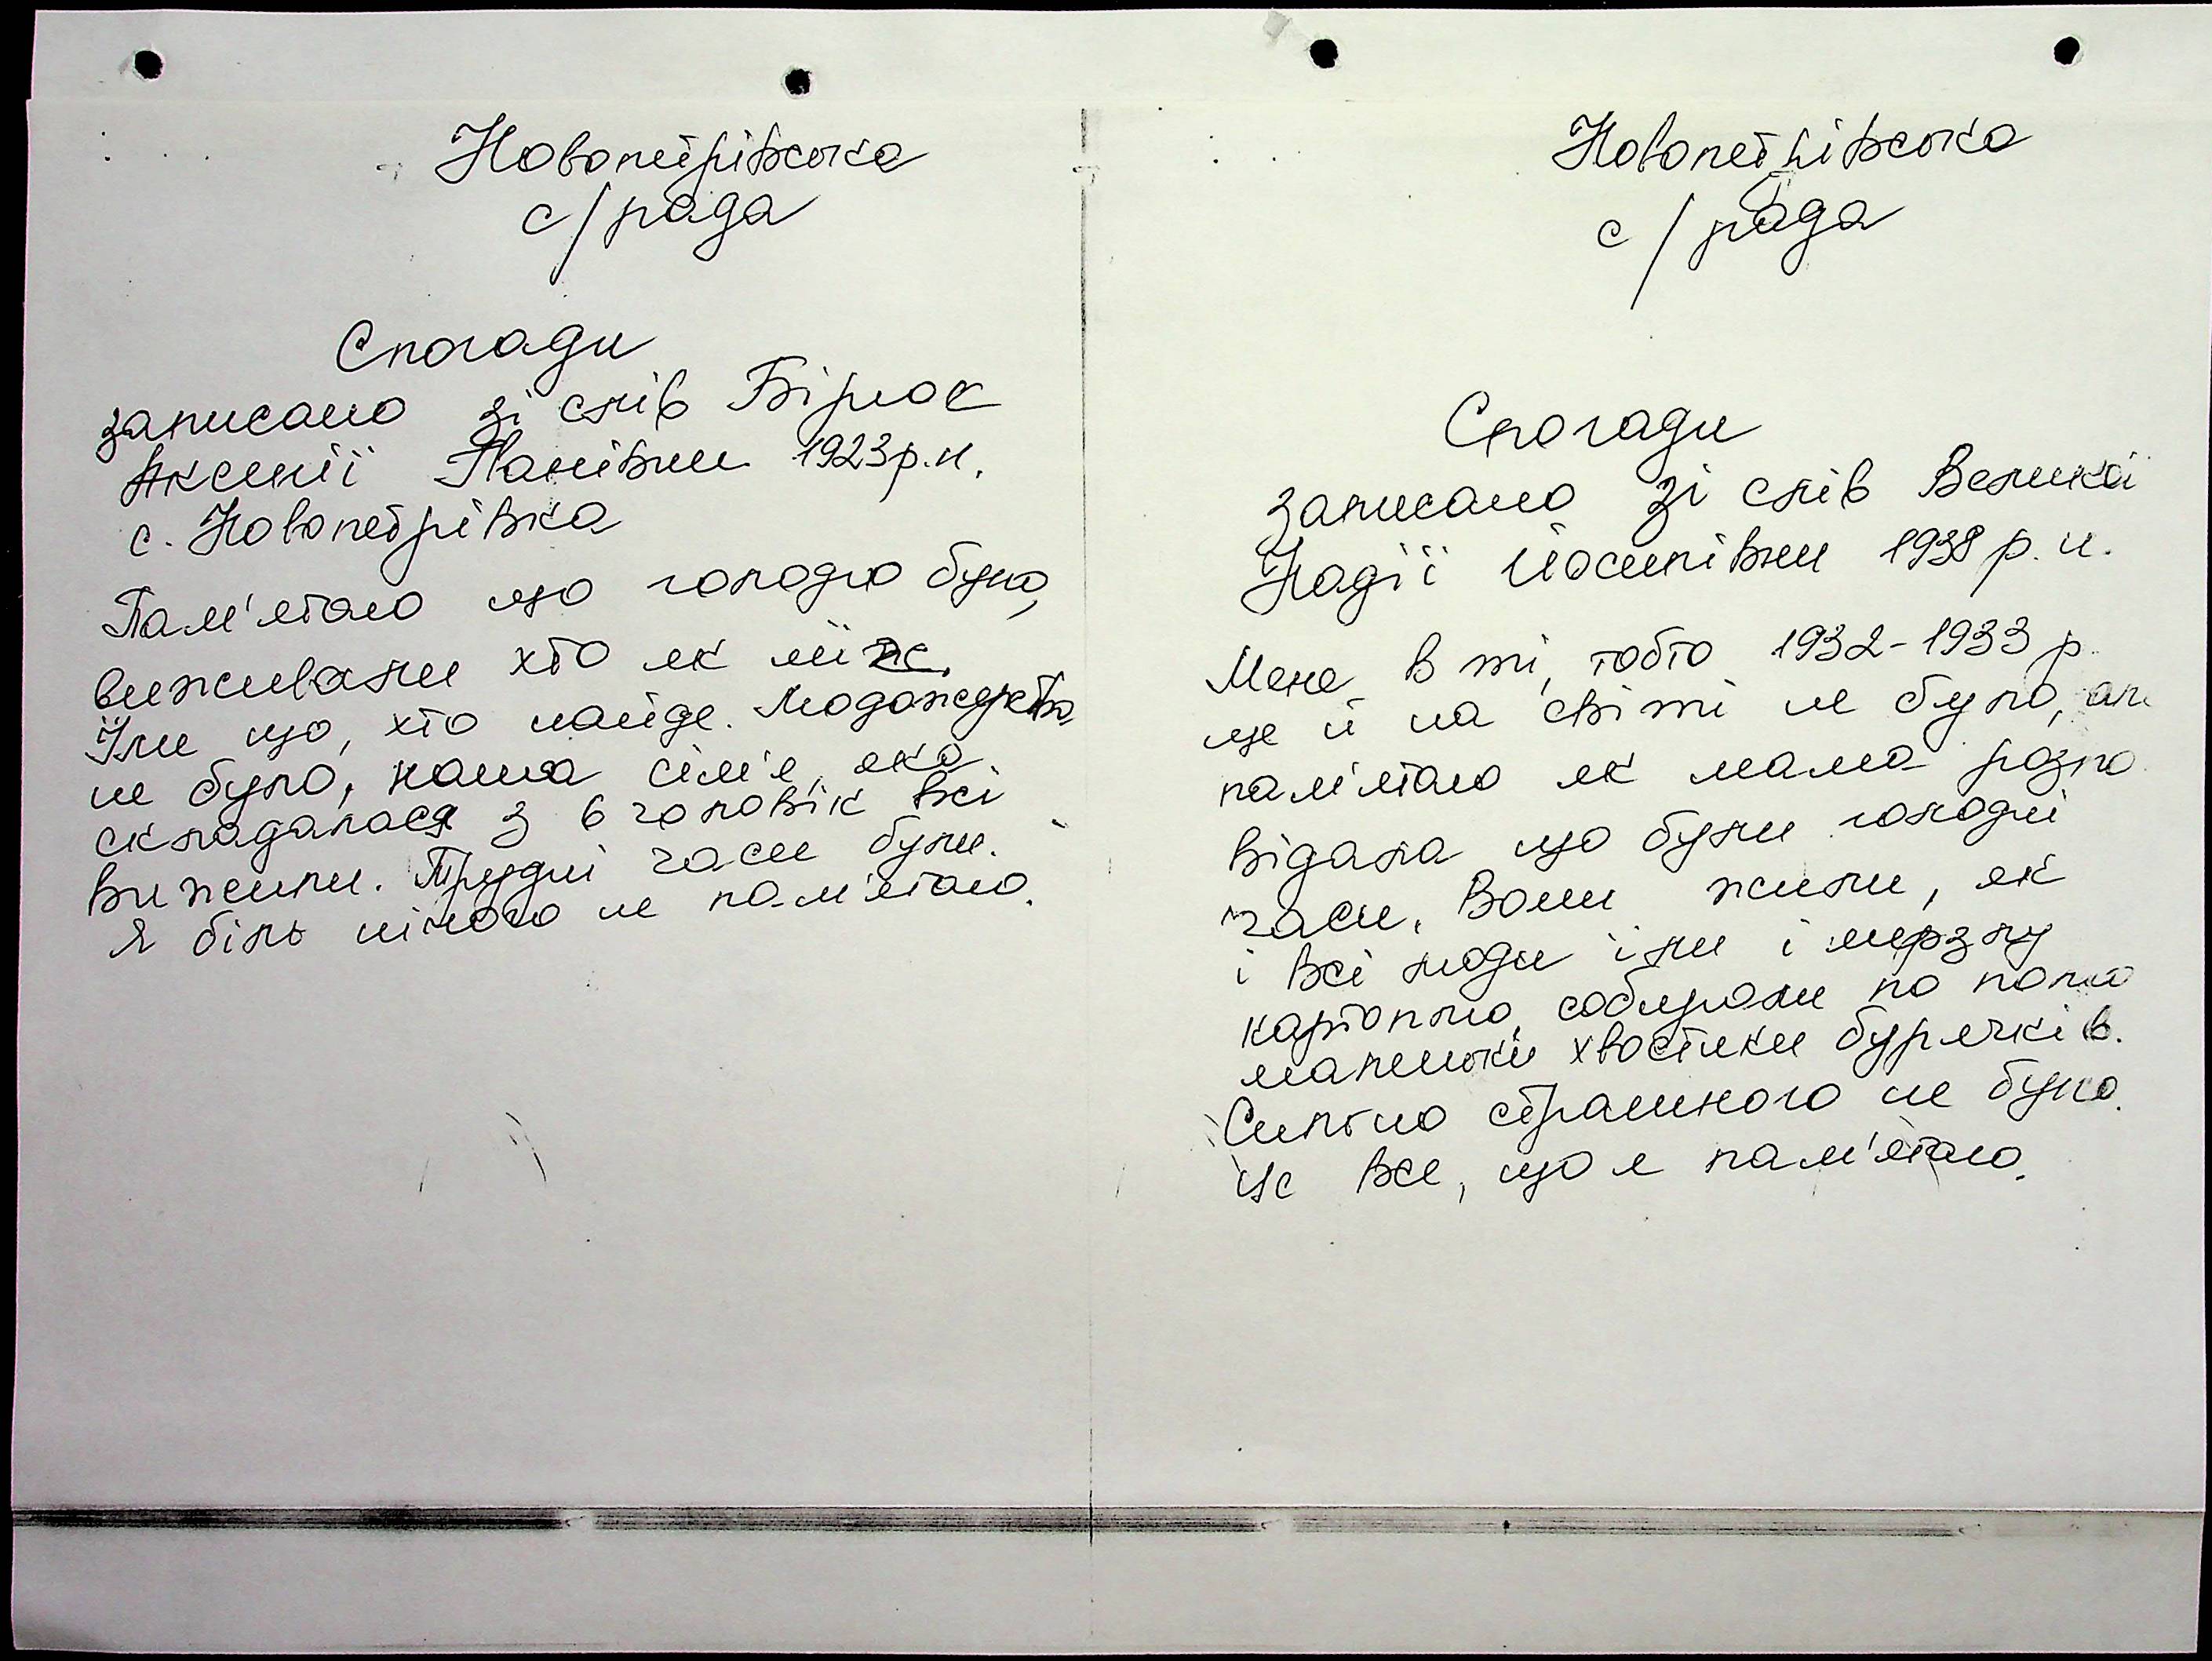 Новопетрівська
с/рада
Спогади
записано зі слів Бірюк
Аксенії Панівни 1923р.н.
с. Новопетрівка
Пам'ятаю що голодно було,
виживали хто як міг.
Їли що, хто найде. Людожерства
не було, наша сім'я, яка
складалася з 6 чоловік всі
вижили. Трудні часи були.
Я більь нічого не пам'ятаю.
Новопетрівська
с/рада
Спогади
записано зі слів Великої
Надії Йосипівни 1938 р.н.
Мене в ті, тобто 1932-1933 р.
ще й на світі не було, але
пам'ятаю як мама розпо
відала що були голодні
часи. Вони жили, як
і всі люди їли і мерзлу
картоплю, собирали по полю
маленькі хвостики бурячків.
Сильно страшного не було.
Це все, що я пам'ятаю.